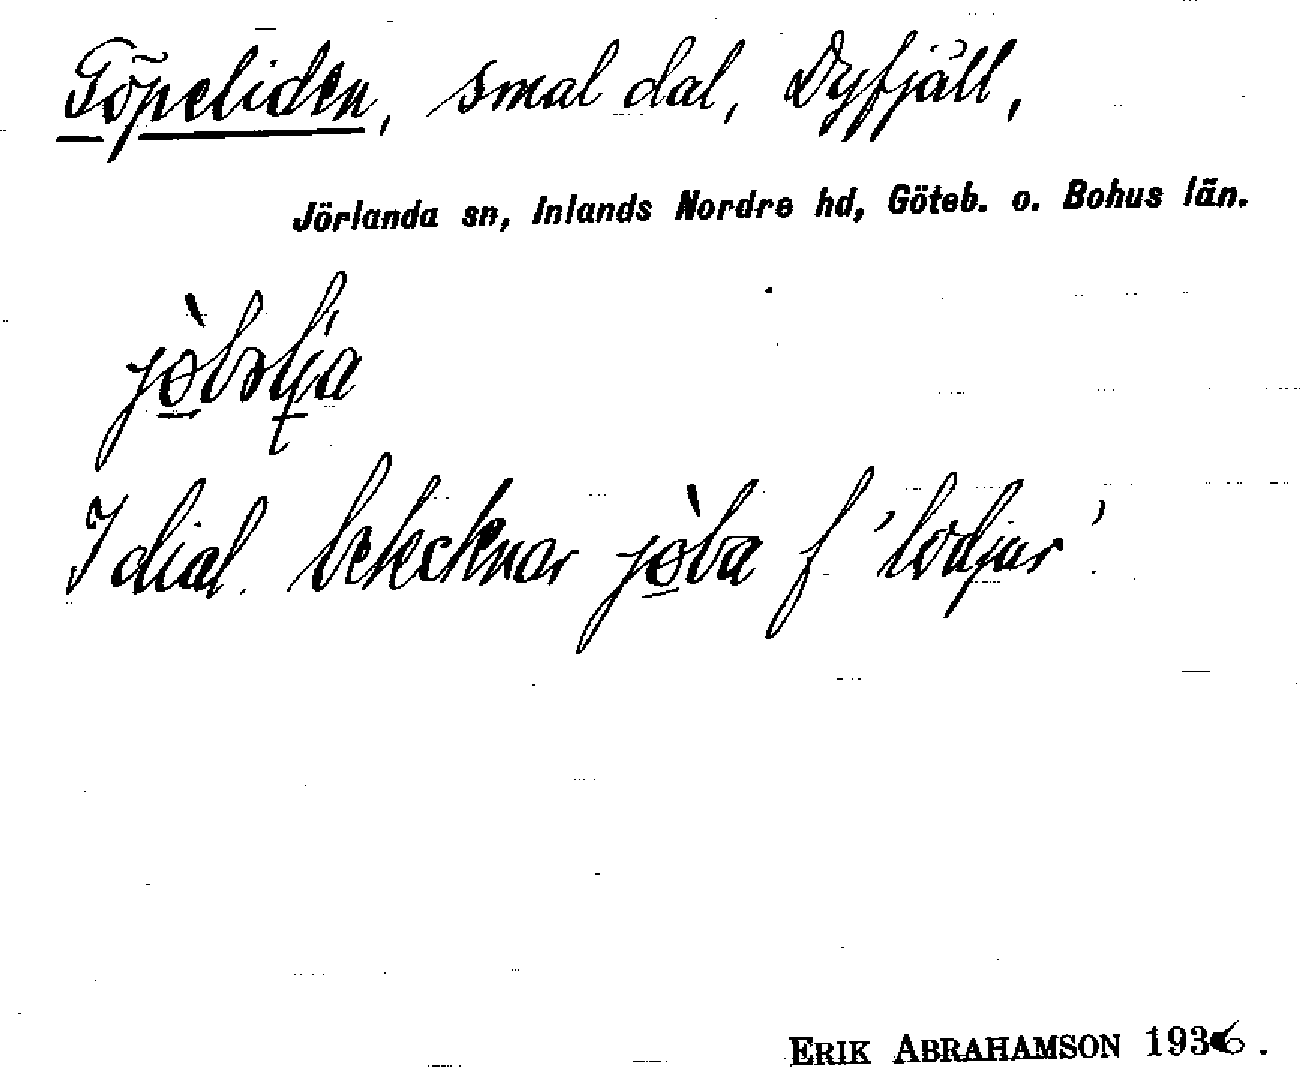 Göpeliden, smal dal, Dyfjäll,
Jörlanda sn, Inlands Nordre hd, Göteb. o. Bohus län.
I dial. betecknar jø̀ba f 'lodjur'.
ERIK ABRAHAMSON 1936.